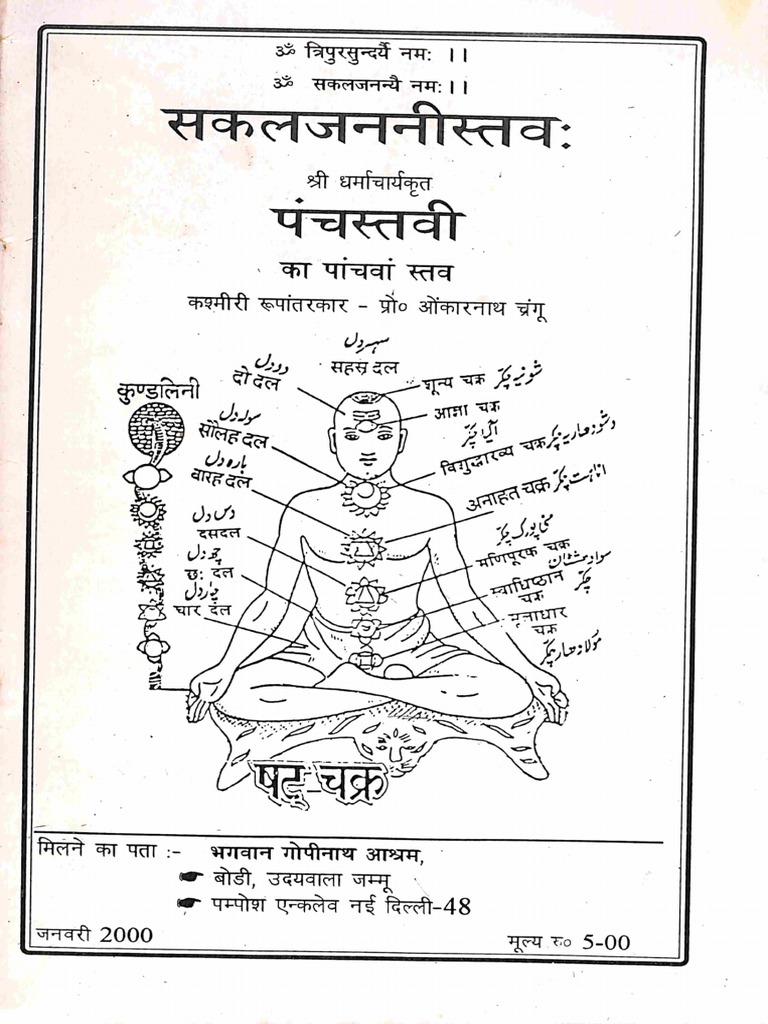 ॐ त्रिपुरसुन्दर्यै नमः ।।
ॐ सकलजनन्यै नमः।।
सकलजननीस्तवः
श्री धर्माचार्यकृत
पंचस्तवी
का पांचवां स्तव
कश्मीरी रूपांतरकार – प्रो० ओंकारनाथ च्रंगू
سہسر دل
सहस्र दल
دو دل
दो दल
شونیہ چکر
शून्य चक्र
कुण्डलिनी
आज्ञा चक्र
آگیا چکر
سولہ دل
सौलह दल
विशुद्धारव्य चक्र
بارہ دل
बारह दल
اناہت چکر
अनाहत चक्र
دس دل
दसदल
منی پورک چکر
मणिपूरक चक्र
چھ دل
छः दल
स्वाधिष्ठान
चक्र
چکر
چار دل
चार दल
मूलाधार
चक्र
مولادھار چکر
षट् चक्र
मिलने का पता :– भगवान गोपीनाथ आश्रम,
बोडी, उदयवाला जम्मू
पम्पोश एन्कलेव नई दिल्ली-48
जनवरी 2000
मूल्य रु० 5-00